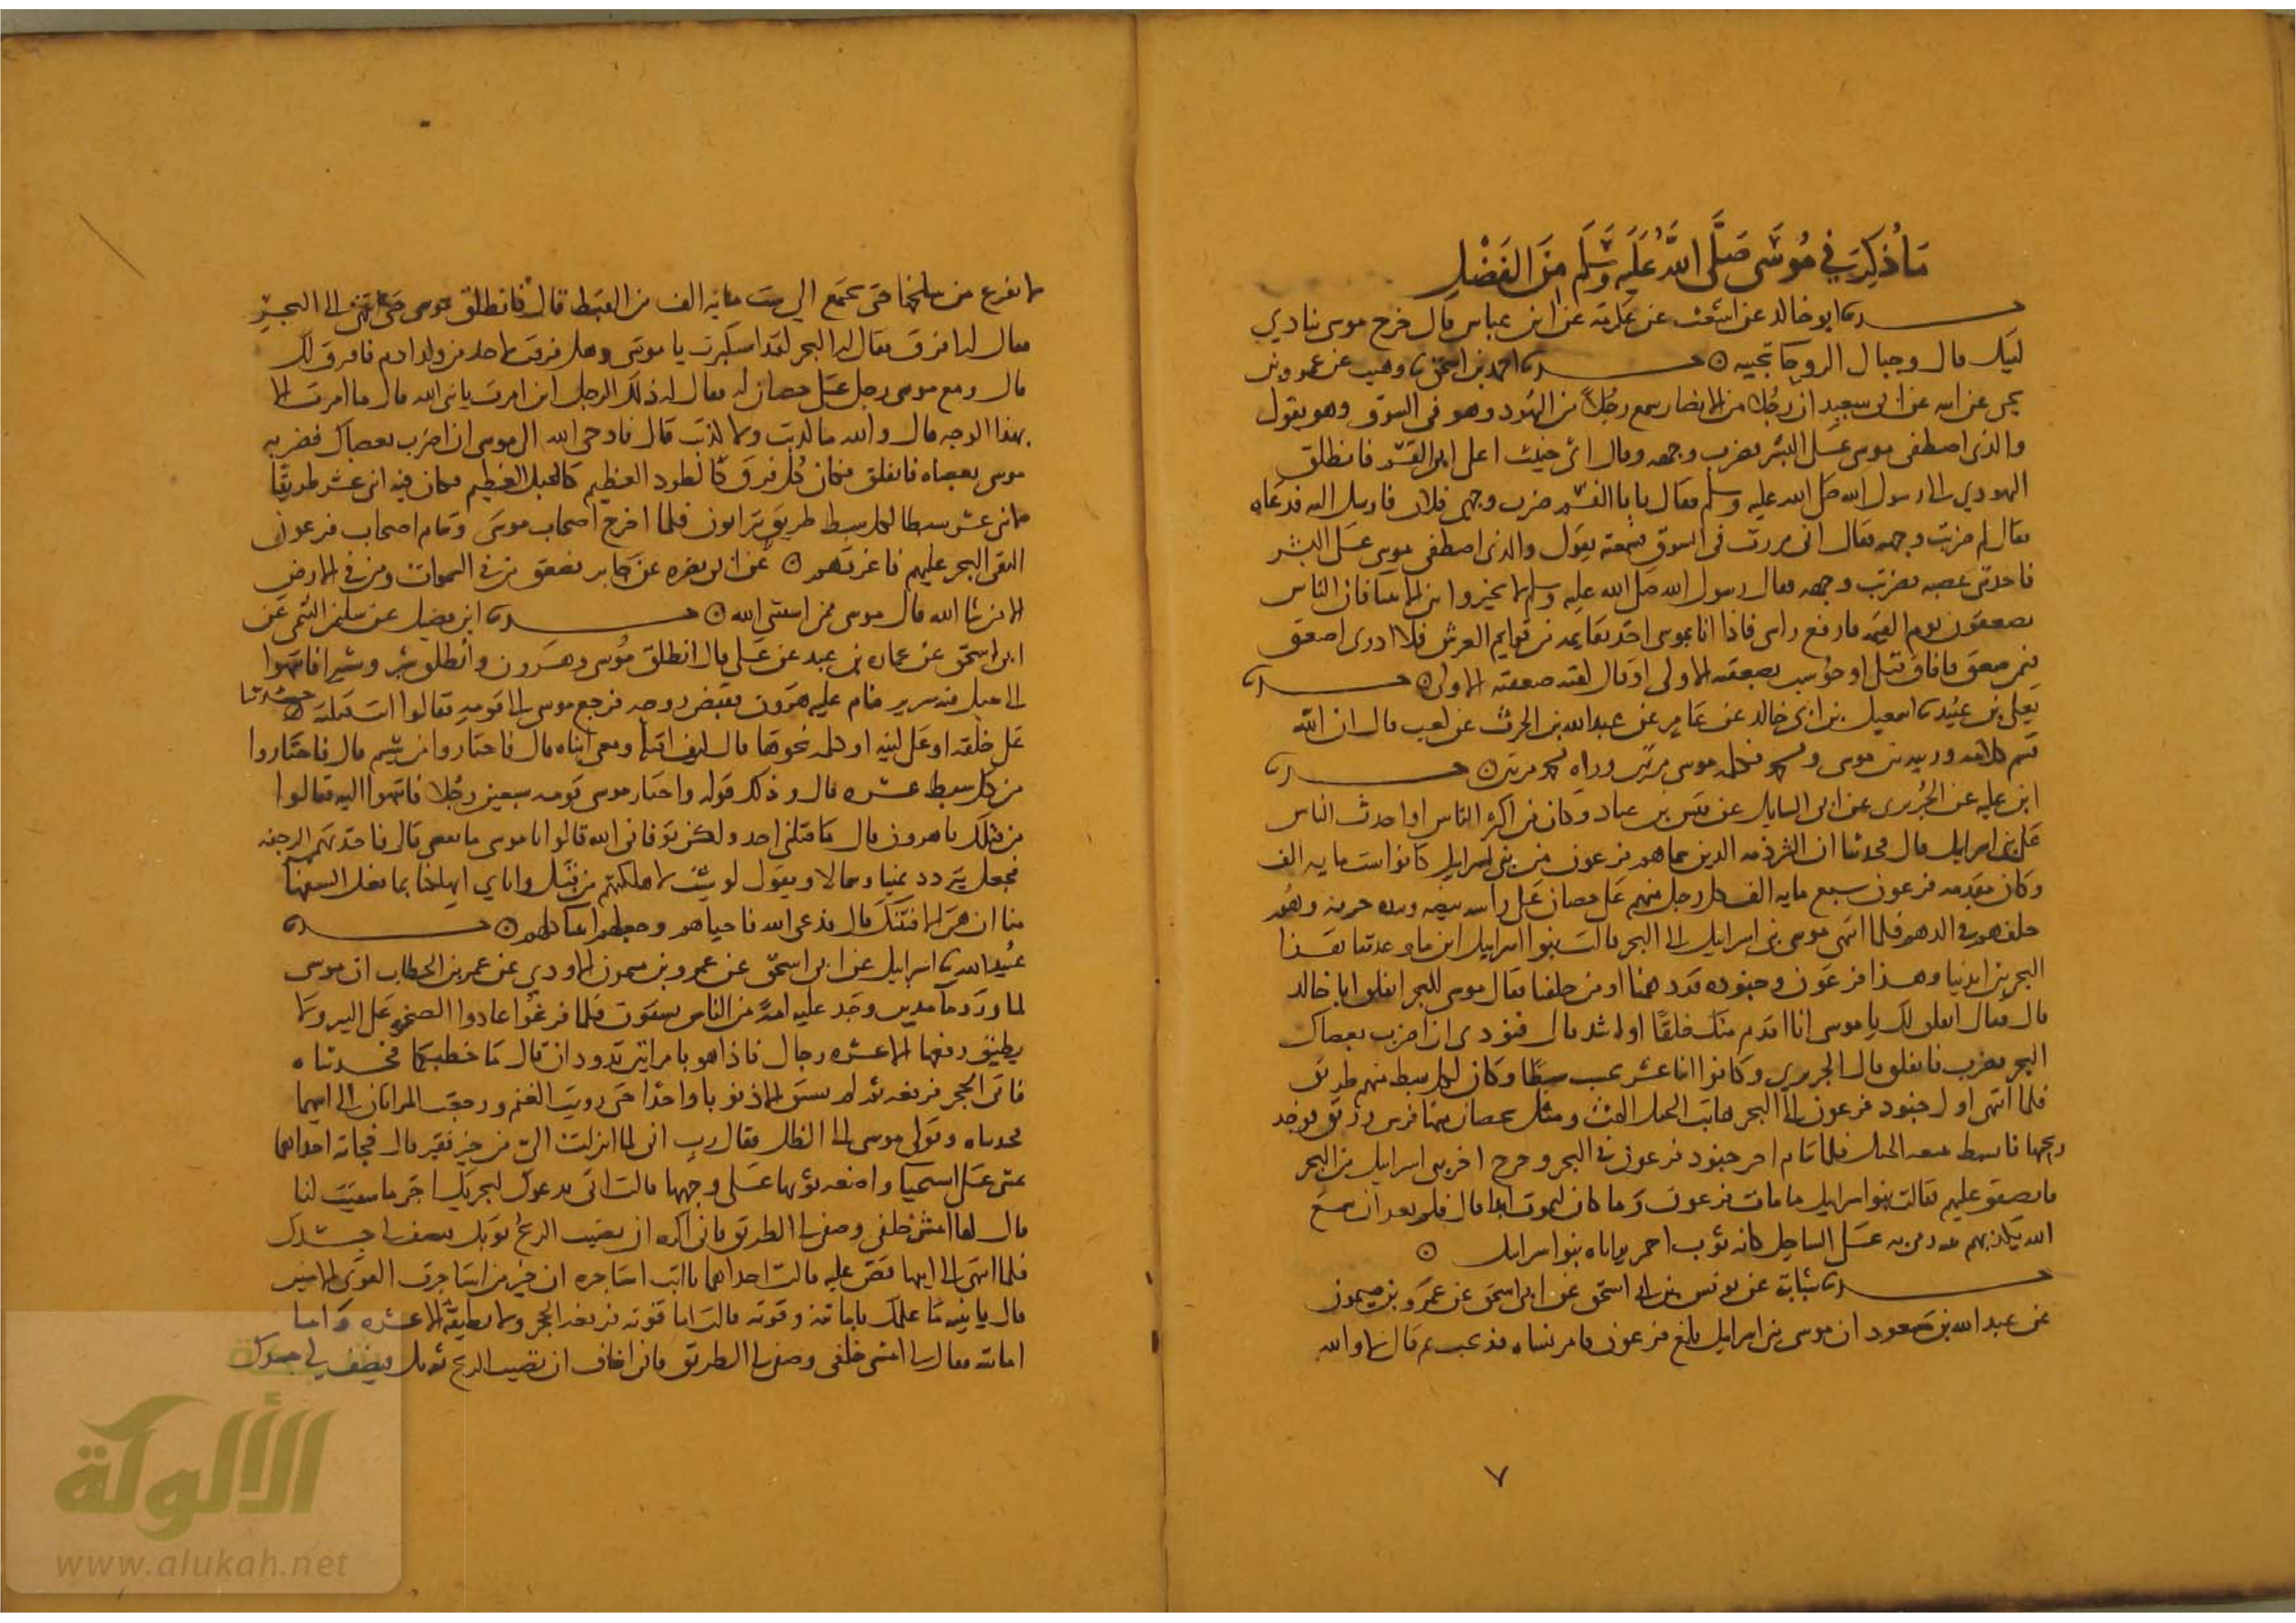 مَا ذُكِرَ فِي مُوسَى صَلَّى اللَّهُ عَلَيْهِ وَسَلَّمَ مِنَ الفَضْلِ
حدثنا ابو خالد عن اشعث عن عكرمة عن ابن عباس قال خرج موسى ينادي
لبيك قال وجبال الروحا تجيبه ⊙ حدثنا احمد بن اسحق نا وهيب عن عمرو بن
يحيى عن ابيه عن ابي سعيد ان رجلا من الانصار سمع رجلاً من اليهود وهو في السوق وهو يقول
والذي اصطفى موسى على البشر فضرب وجهه وقال اي خبيث اعلى ابي القسم فانطلق
اليهودي الى رسول الله صلى الله عليه وسلم فقال يا ابا القسم ضرب وجهي فلان فارسل اليه فدعاه
فقال لم ضربت وجهه فقال اني مررت في السوق فسمعته يقول والذي اصطفى موسى على البشر
فاخذتني غضبه فضربت وجهه فقال رسول الله صلى الله عليه وسلم لا تخيروا بين الانبيا فان الناس
يصعقون يوم القيمه فارفع راسي فاذا انا بموسى اخذ بقايمه من قوايم العرش فلا ادري اصعق
فيمن صعق فافاق قبلي او حوسب بصعقته الاولى او قال كفته صعقته الاولى ⊙ حدثنا
يعلى بن عبيد نا اسمعيل بن ابي خالد عن عامر عن عبد الله بن الحرث عن كعب قال ان الله
قسم كلامه ورويته بين موسى ومحمد فكلمه موسى مرتين وراه محمد مرتين ⊙ حدثنا
ابن عليه عن الجُريري عن ابي السليل عن قيس بن عباد وكان من اكثر الناس او احدث الناس
عن بني اسرايل قال فحدثنا ان الشرذمه الذين سماهم فرعون من بني اسرايل كانوا ست مايه الف
وكان مقدمه فرعون سبع مايه الف كل رجل منهم على حصان على راسه بيضه وبيده حربه وهو
خلفهم في الدهم فلما انتهى موسى ببني اسرايل الى البحر قالت بنوا اسرايل اين ما وعدتنا هذا
البحر بين ايدينا وهذا فرعون وجنوده قد دهمنا او من خلفنا فقال موسى للبحر انفلق ابا خالد
قال فقال انفلق لك يا موسى انا اقدم منك خلقًا او اشد قال فنودي ان اضرب بعصاك
البحر فضرب فانفلق قال الجريري وكانوا اثنا عشر سبطًا وكان لكل سبط منهم طريق
فلما انتهى اول جنود فرعون الى البحر هابت الخيل اللهث ومثل لحصان منها فرس وديق فوجد
ريحها فانسل تتبعه الخيل فلما تتام اخر جنود فرعون في البحر وخرج اخر بني اسرايل من البحر
فانصفق عليهم فقالت بنوا اسرايل ما مات فرعون وما كان ليموت ابدا قال فلم يعد ان سمع
الله تكذيبهم نبيه فرمى به على الساحل كانه ثور احمر يراياه بنوا اسرايل ⊙
حدثنا شبابة عن يونس بن ابي اسحق عن ابي اسحق عن عمرو بن ميمون
عن عبد الله بن مسعود ان موسى ببني اسرايل بلغ فرعون فامر بشاه فذبحت ثم قال لا والله
٧
لا يفرغ من سلخها حتى يجتمع الي ست مايه الف من القبط قال فانطلق موسى حتى انتهى الى البحر
فقال له افرق فقال له البحر لقد استكبرت يا موسى وهل فرقت لاحد من ولد ادم فافرق لك
قال ومع موسى رجل على حصان له فقال له ذلك الرجل اين امرت يا نبي الله قال ما امرت الا
بهذا الوجه قال والله ما كذبت ولا كذبت قال فاوحى الله الى موسى ان اضرب بعصاك فضربه
موسى بعصاه فانفلق فكان كل فرق كالطود العظيم كالجبل العظيم فكان فيه اثني عشر طريقًا
لاثني عشر سبطا لكل سبط طريق يتراون فلما اخرج اصحاب موسى وتتام اصحاب فرعون
التقى البحر عليهم فاغرقهم ⊙ عن ابي نضره عن جابر فصعق من في السموات ومن في الارض
الا من شا الله قال موسى ممن استثنى الله ⊙ حدثنا ابن فضيل عن سلمن التيمي عن
ابي اسحق عن عماره بن عبد عن علي قال انطلق موسى وهرون وانطلق شبر وشبير فانتهوا
الى جبل فيه سرير فنام عليه هرون فقبض روحه فرجع موسى الى قومه فقالوا انت قتلته حسدتنا
على خلقه او على لينه او كلمه نحوها قال كيف اقتله ومعي ابناه قال فاختاروا من شيتم قال فاختاروا
من كل سبط عشره قال وذلك قوله واختار موسى قومه سبعين رجلا فانتهوا اليه فقالوا
من قتلك يا هرون قال ما قتلني احد ولكن توفاني الله قالوا يا موسى ما نعصي قال فاخذتهم الرجفه
فجعل يتردد يمينا وشمالا ويقول لو شيت اهلكتهم من قبل واياي اتهلكنا بما فعل السفها
منا ان هي الا فتنتك قال فدعى الله فاحياهم وجعلهم انبيا كلهم ⊙ حدثنا
عبيد الله نا اسرايل عن ابي اسحق عن عمرو بن ميمون الاودي عن عمر بن الخطاب ان موسى
لما ورد ما مدين وجد عليه امة من الناس يسقون فلما فرغوا عادوا الصخره على البير ولا
يطيق رفعها الا عشره رجال فاذا هو بامراتين تذودان قال ما خطبكما فحدثتاه
فاتى الحجر فرفعه ثم لم يستق الا ذنوبا واحدا حتى رويت الغنم ورجعت المراتان الى ابيهما
فحدثتاه وتولى موسى الى الظل فقال رب اني لما انزلت الي من خير فقير قال فجاته احداهما
تمشي على استحيا واضعه ثوبها على وجهها قالت ان ابي يدعوك ليجزيك اجر ما سقيت لنا
قال لها امشي خلفي وصفي لي الطريق فاني اكره ان تصيب الريح ثوبك فيصف لي جسدك
فلما انتهى الى ابيها قص عليه قالت احداهما يا ابت استاجره ان خير من استاجرت القوي الامين
قال يا بنيه ما علمك بامانته وقوته قالت اما قوته فرفعه الحجر ولا يطيقه الا عشره واما
امانته فقال لي امشي خلفي وصفي لي الطريق فاني اخاف ان تصيب الريح ثوبك فيصف لي جسدك
الألوكة
www.alukah.net